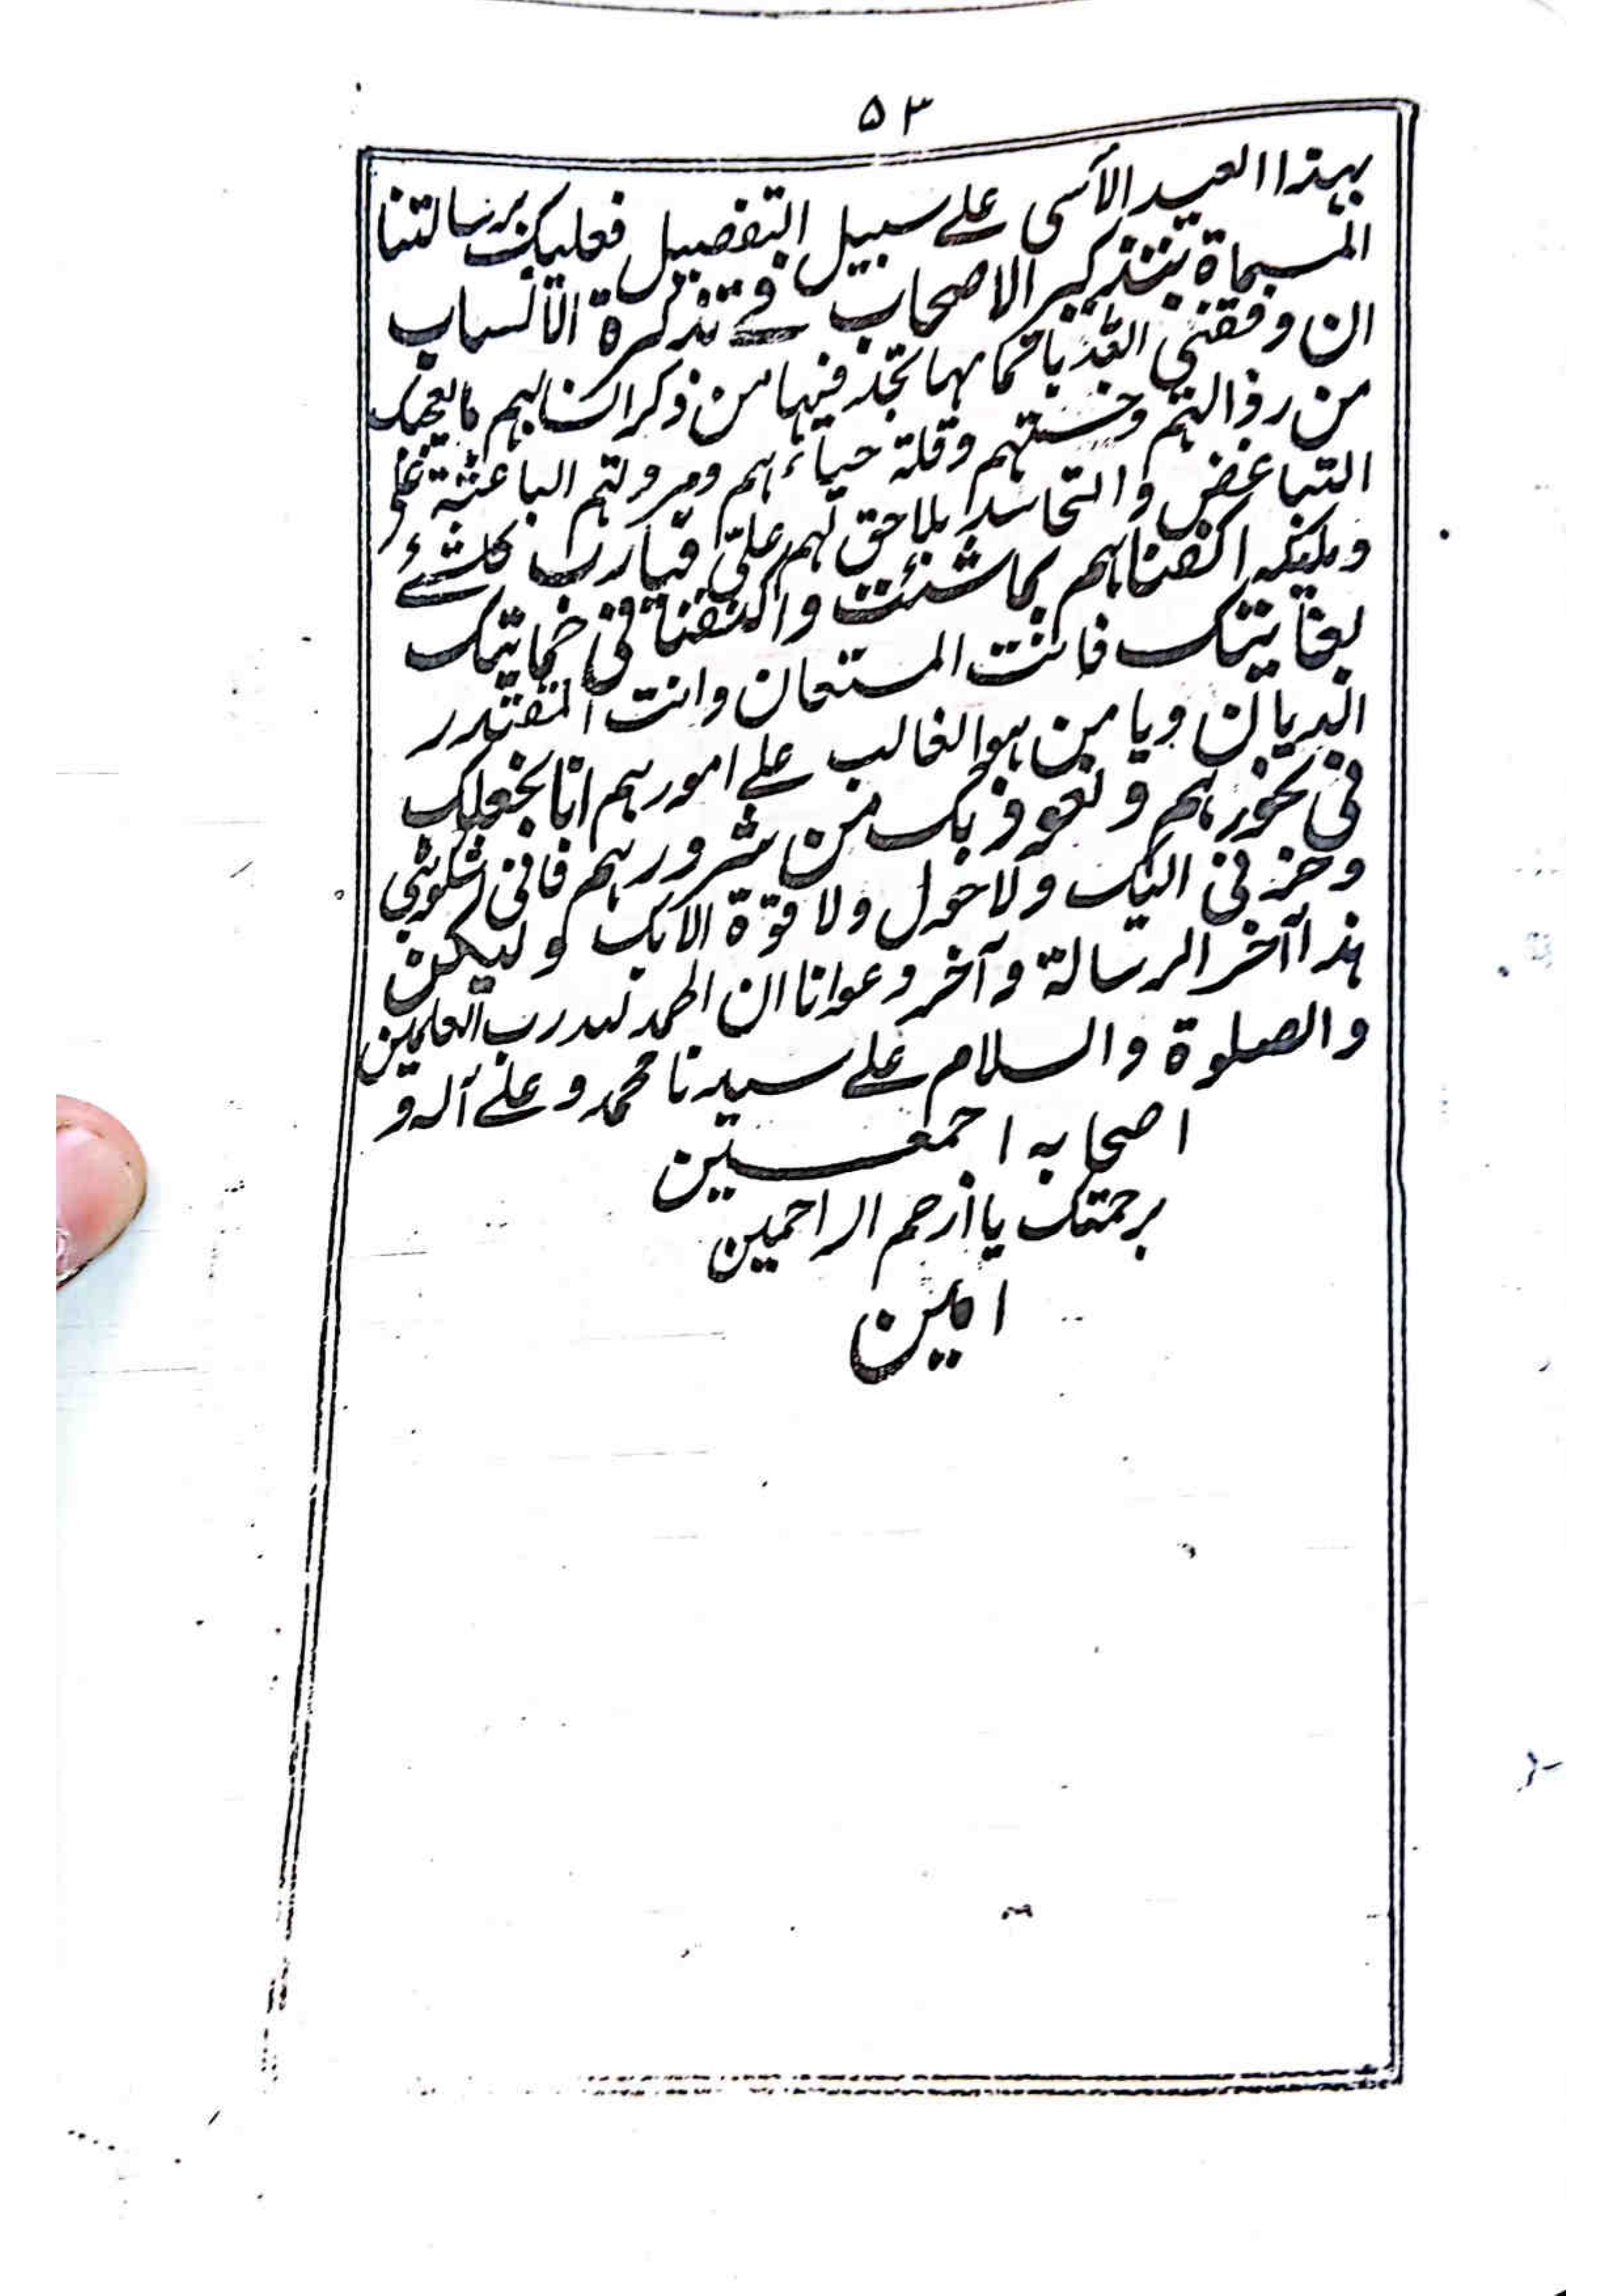 ۵۳
بهذا العبد الآسی علے سبیل التفصیل فعلیک برسالتنا
المسماة بتذکیر الاصحاب فے تذکرة الانساب
ان وفقنی اللہ باتمامها تجد فیها من ذکر انسابهم ما یعجبک
من رذالتهم وخستهم وقلة حیاءهم و الباعثة علی
التباغض والتحاسد بلاحق لهم علیّ فیارب کل شئ
وملیکه اکفناهم بما شئت واکنفنا فی حمایتک
بعنایتک فانت المستعان وانت المقتدر
الدیان ویا من هو الغالب علے امورهم انا نجعلک
فی نحورهم ونعوذ بک من شرورهم فانی اشکو بثی
وحزنی الیک ولا حول ولا قوة الا بک ولیکن
هذا آخر الرسالة وآخر دعوانا ان الحمد لله رب العلمین
والصلوة والسلام علے سیدنا محمد وعلے آله و
اصحابه اجمعین
برحمتک یا ارحم الراحمین
امین